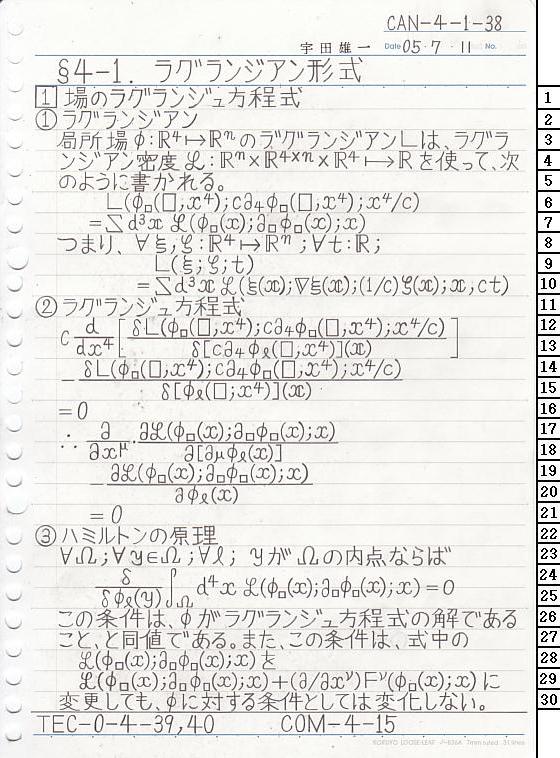 CAN-4-1-38
宇田雄一 Date 05・7・11 No.
§4-1. ラグランジアン形式
1 場のラグランジュ方程式
① ラグランジアン
局所場φ:R⁴↦Rⁿのラグランジアン L は、ラグラ
ンジアン密度ℒ:Rⁿ×R⁴ˣⁿ×R⁴↦Rを使って、次
のように書かれる。
L(φ□(□;x⁴);c∂₄φ□(□;x⁴);x⁴/c)
=∑d³x ℒ(φ□(x);∂□φ□(x);x)
つまり、∀ξ,ζ:R⁴↦Rⁿ;∀t:R;
L(ξ;ζ;t)
=∑d³x ℒ(ξ(x);∇ξ(x);(1/c)ζ(x);x,ct)
② ラグランジュ方程式
c d/dx⁴ [δL(φ□(□;x⁴);c∂₄φ□(□;x⁴);x⁴/c) / δ[c∂₄φℓ(□;x⁴)](x)]
- δL(φ□(□;x⁴);c∂₄φ□(□;x⁴);x⁴/c) / δ[φℓ(□;x⁴)](x)
=0
∴ ∂/∂xᵘ・∂ℒ(φ□(x);∂□φ□(x);x) / ∂[∂μφℓ(x)]
- ∂ℒ(φ□(x);∂□φ□(x);x) / ∂φℓ(x)
=0
③ ハミルトンの原理
∀Ω;∀y∈Ω;∀ℓ; yがΩの内点ならば
δ/δφℓ(y) ∫Ω d⁴x ℒ(φ□(x);∂□φ□(x);x)=0
この条件は、φがラグランジュ方程式の解である
こと、と同値である。また、この条件は、式中の
ℒ(φ□(x);∂□φ□(x);x)を
ℒ(φ□(x);∂□φ□(x);x)+(∂/∂xᵛ)Fᵛ(φ□(x);x)に
変更しても、φに対する条件としては変化しない。
TEC-0-4-39,40 COM-4-15
KOKUYO LOOSE-LEAF ノ-836A 7mm ruled 31 lines
1
2
3
4
5
6
7
8
9
10
11
12
13
14
15
16
17
18
19
20
21
22
23
24
25
26
27
28
29
30